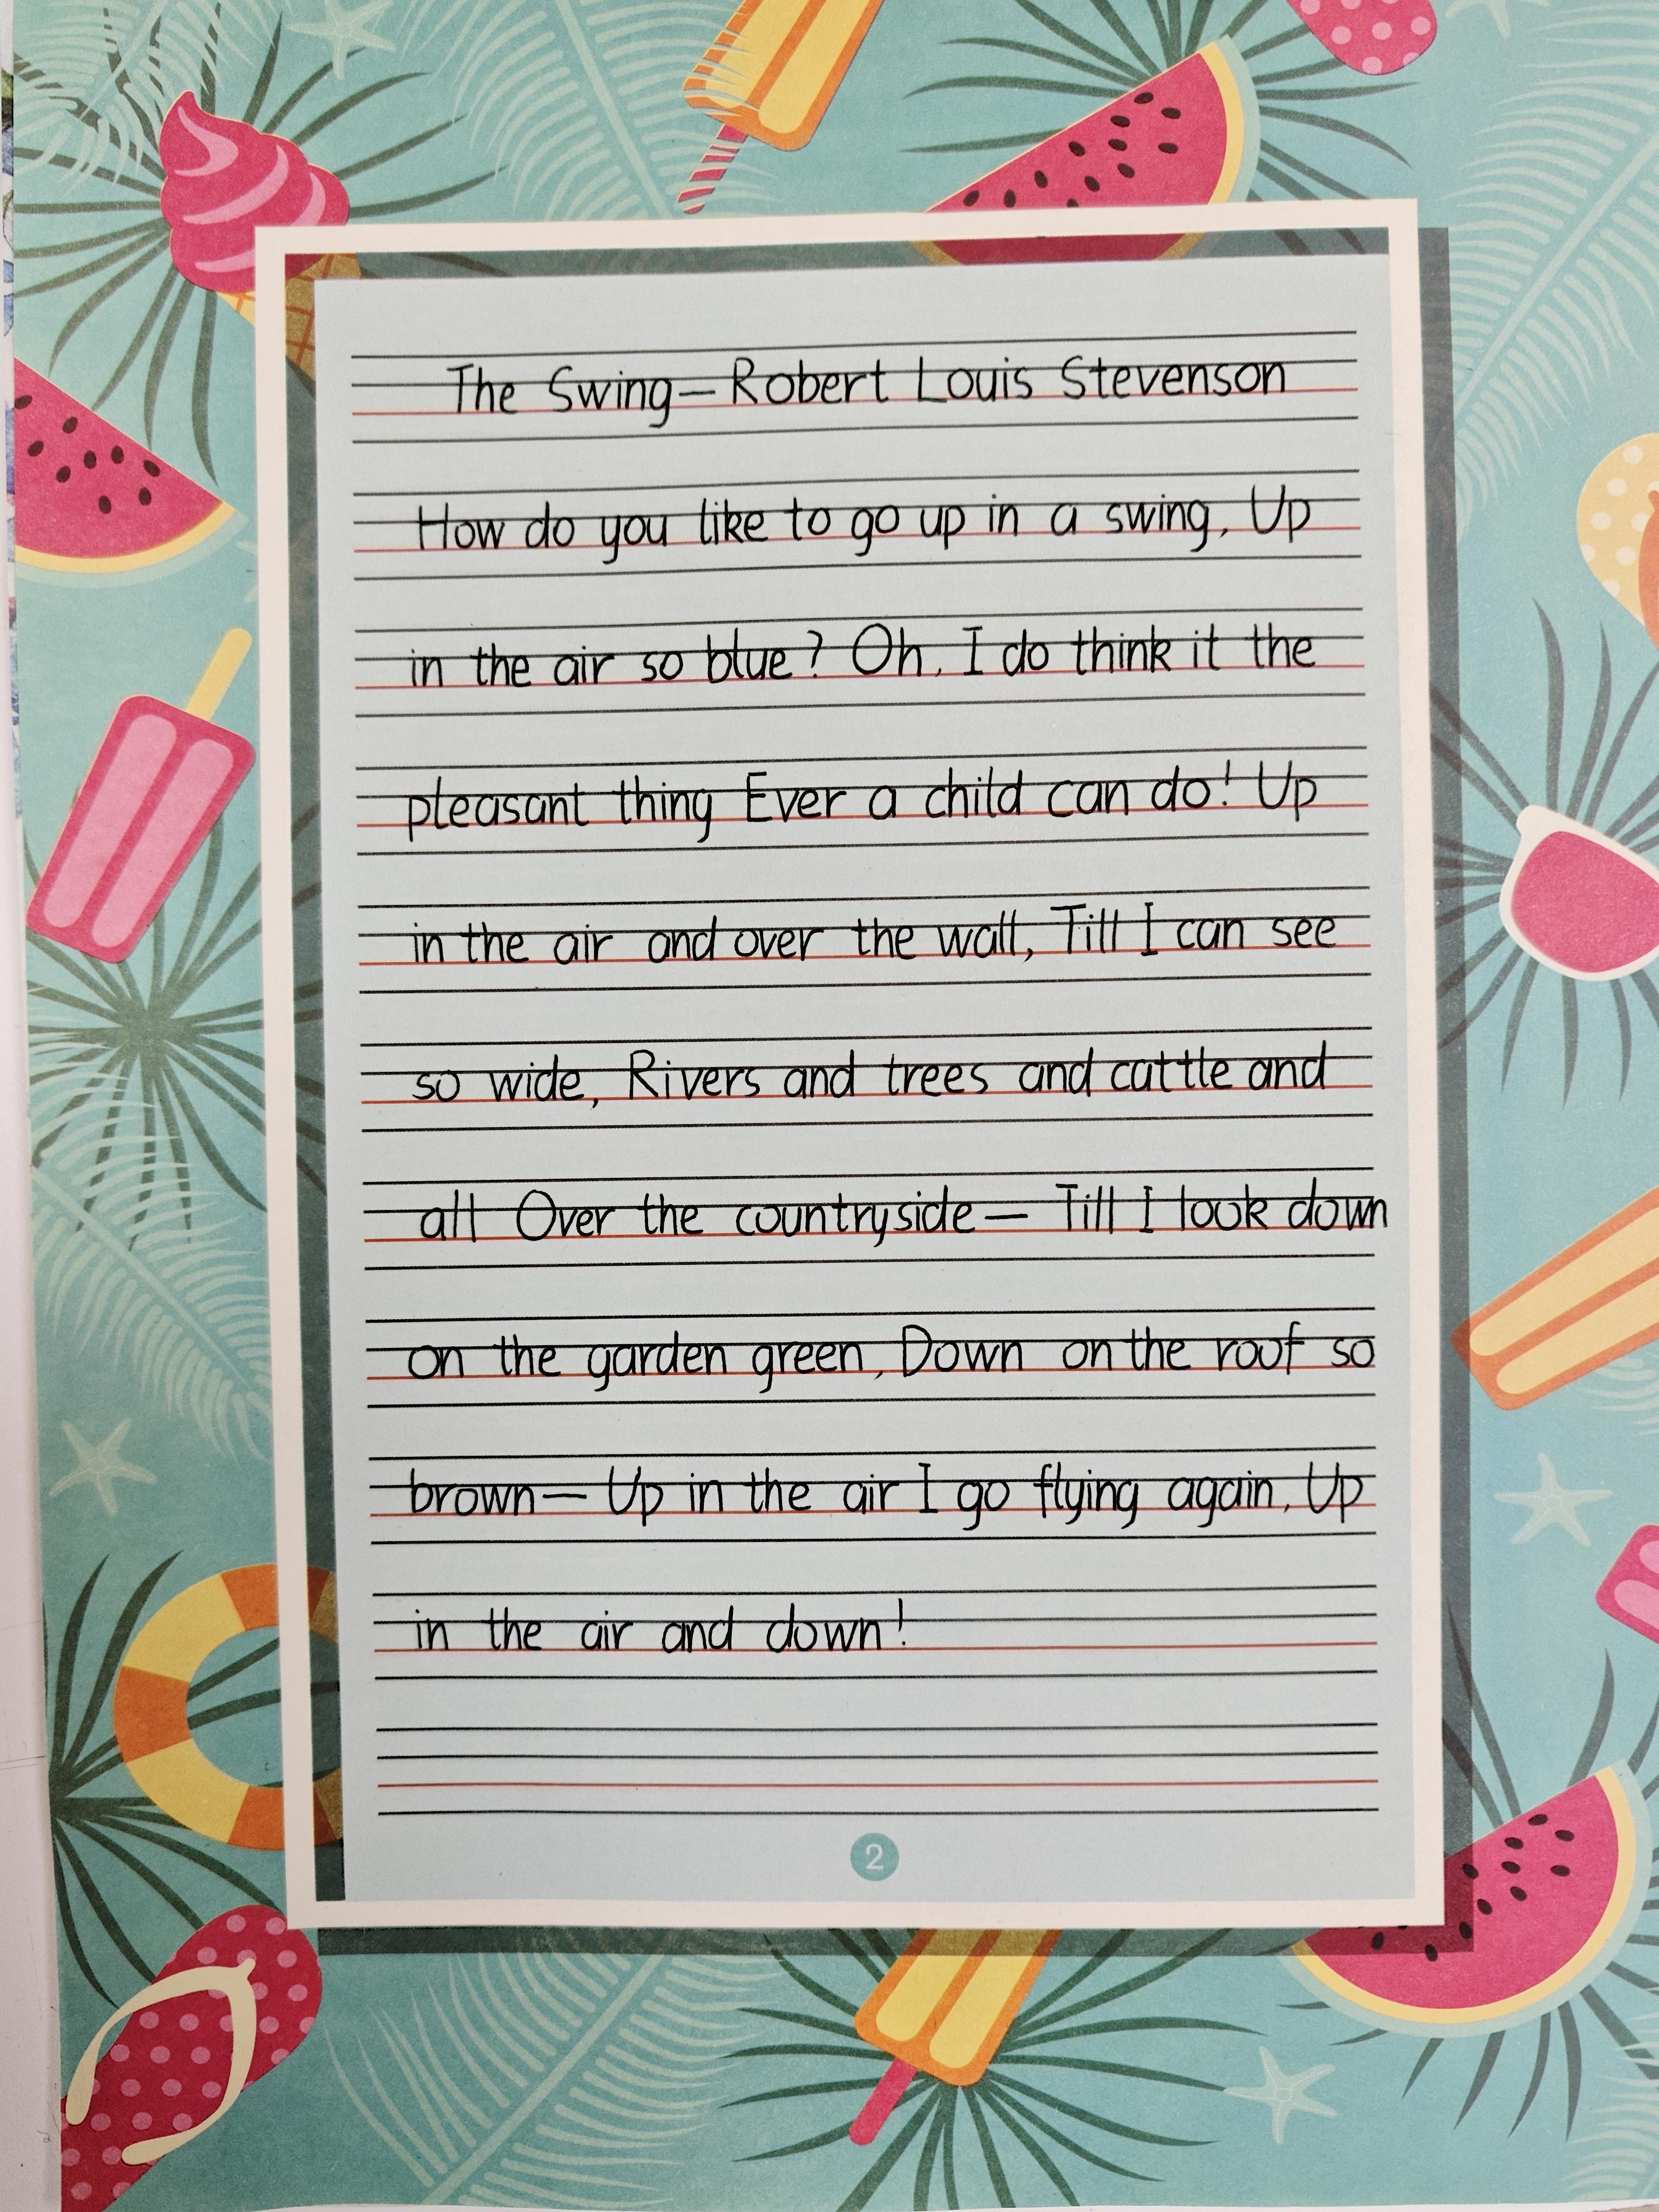 The Swing—Robert Louis Stevenson
How do you like to go up in a swing, Up
in the air so blue? Oh, I do think it the
pleasant thing Ever a child can do! Up
in the air and over the wall, Till I can see
so wide, Rivers and trees and cattle and
all Over the countryside— Till I look down
on the garden green, Down on the roof so
brown— Up in the air I go flying again, Up
in the air and down!
2